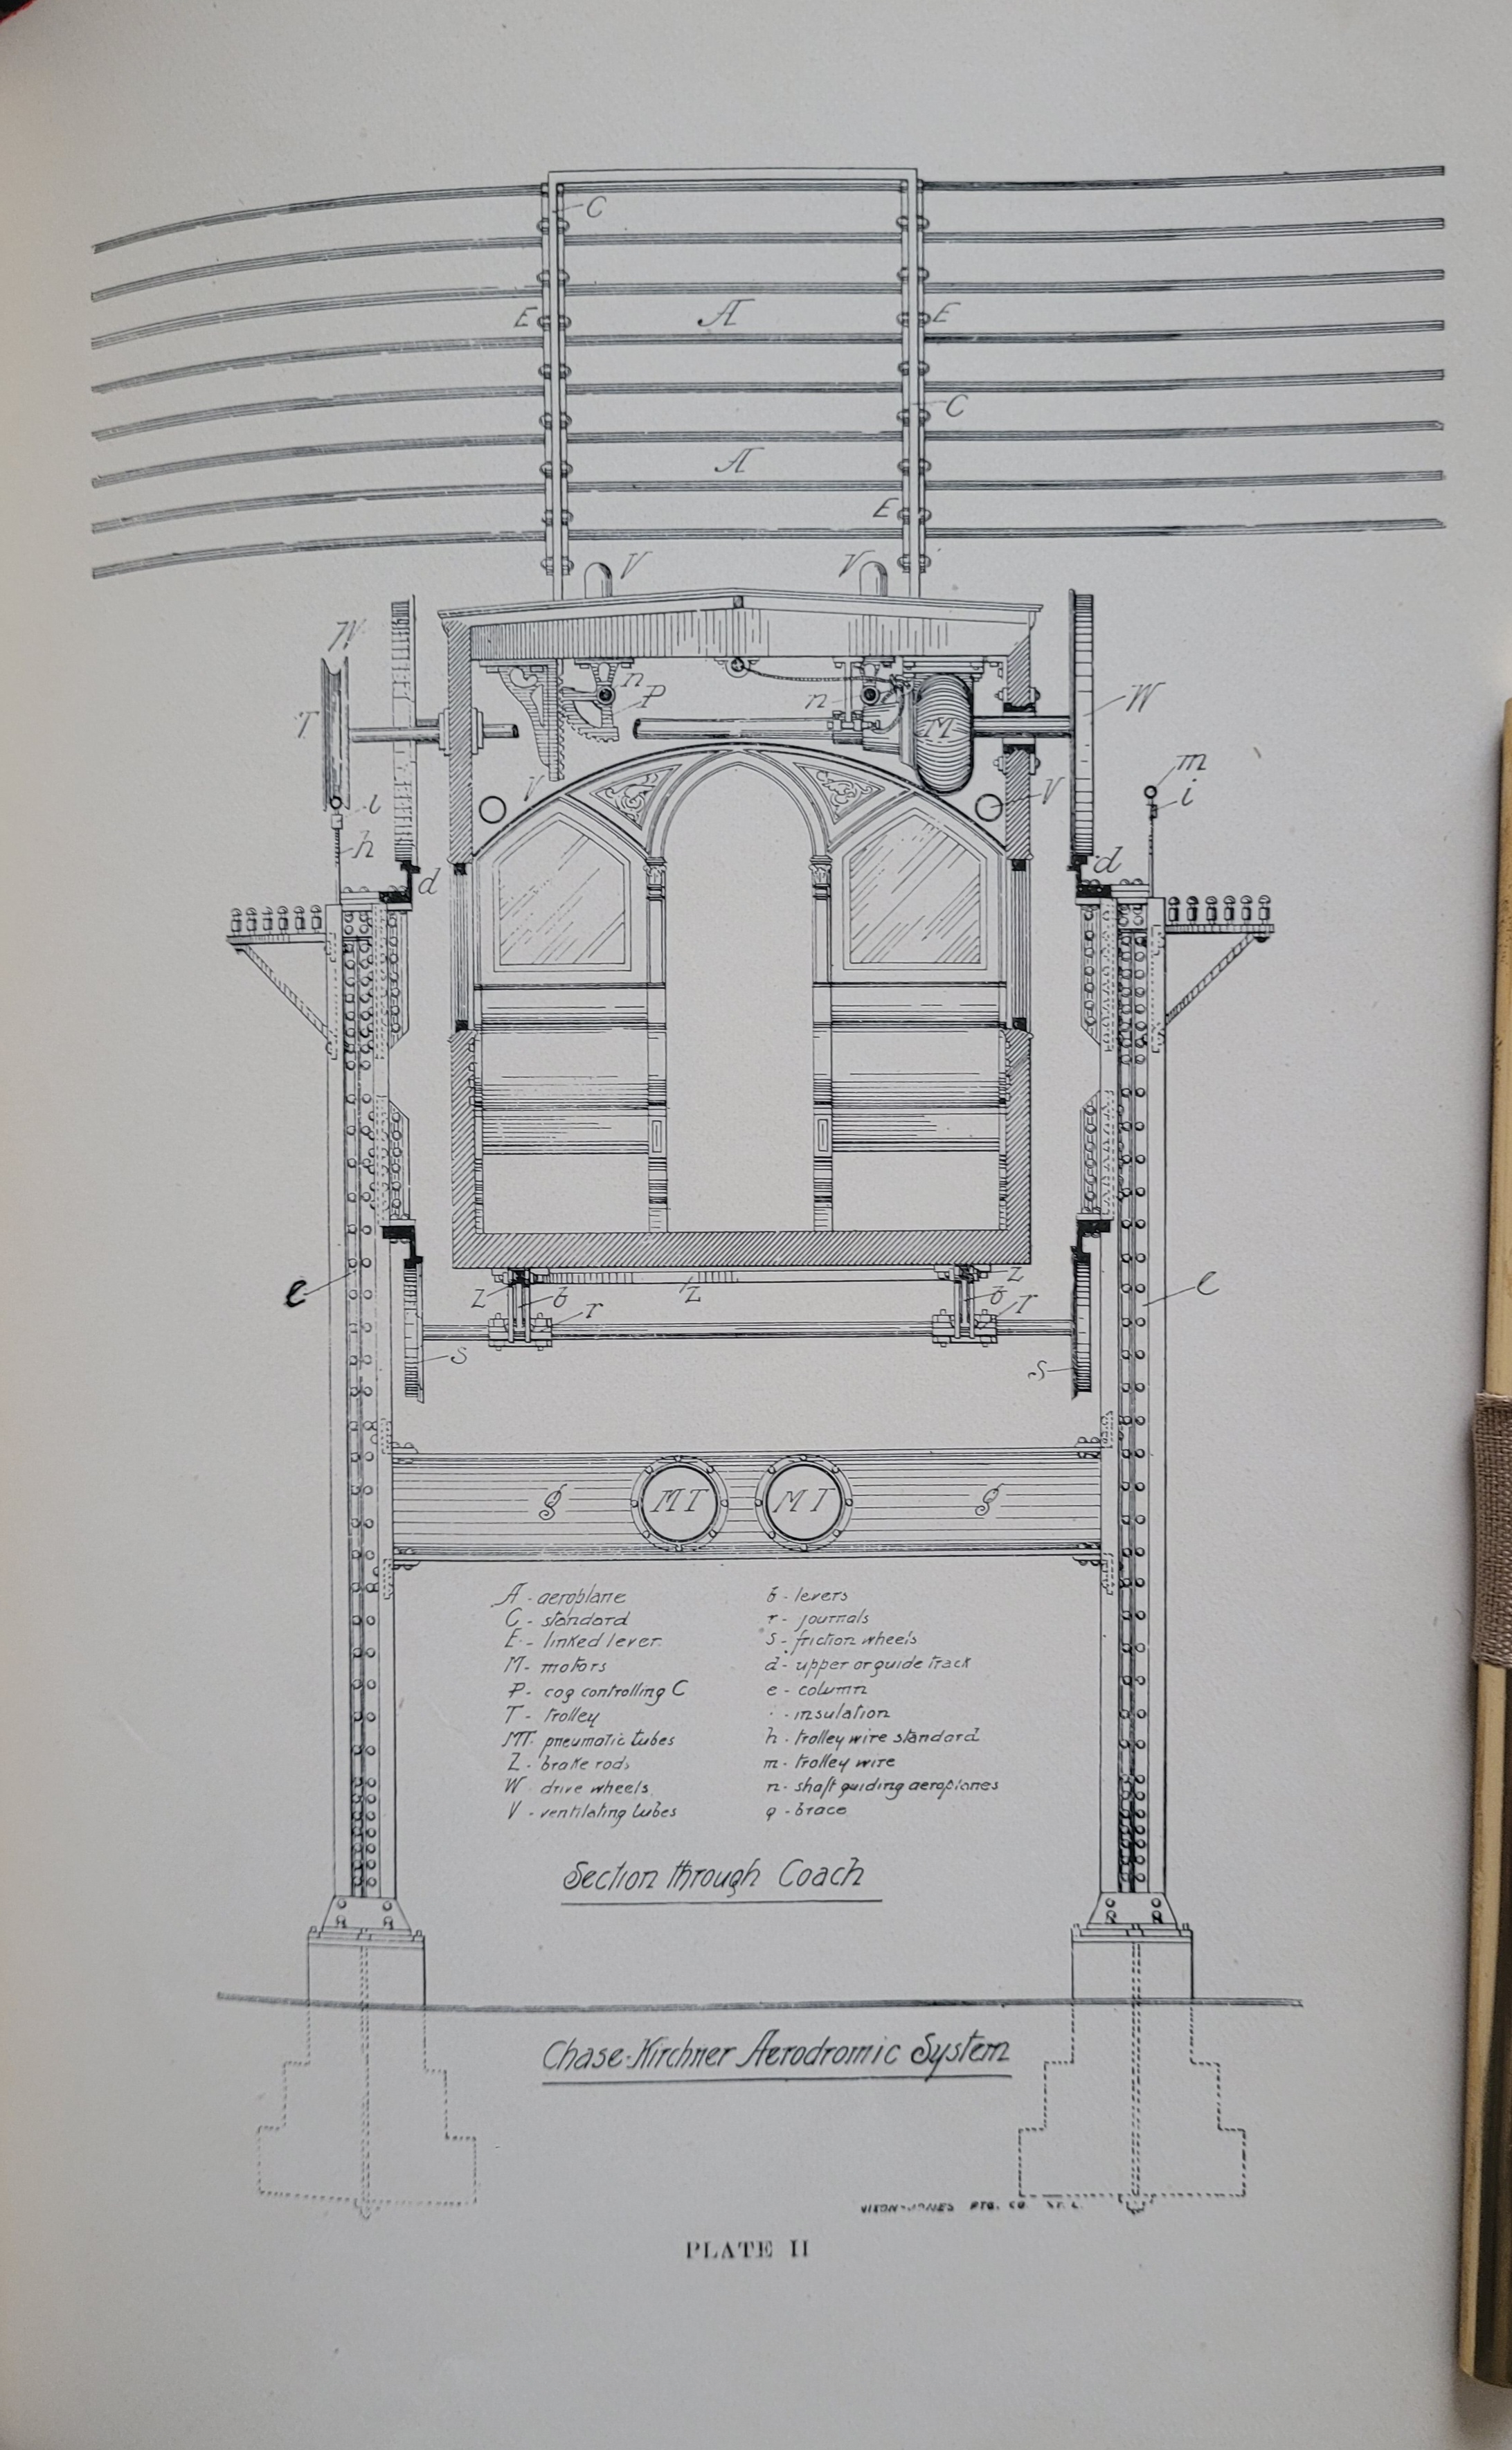 C
E A E
C
A
E
V V
W
n P n W
T M
m
i V V i
h
d d
e z b z z b e
r r
s s
g MT MT g
A - aeroplane
C - standard
E - linked lever
M - motors
P - cog controlling C
T - trolley
MT. pneumatic tubes
Z - brake rods
W drive wheels
V - ventilating tubes
b - levers
r - journals
s - friction wheels
d - upper or guide track
e - column
· - insulation
h - trolley wire standard
m - trolley wire
n - shaft guiding aeroplanes
g - brace
Section through Coach
Chase-Kirchner Aerodromic System
NIXON-JONES PTG. CO. ST. L.
PLATE II